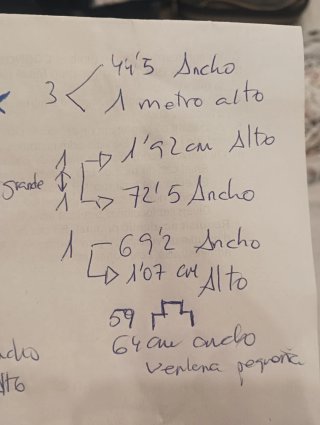 44'5 Ancho
3
1 metro alto
1 1'92 cm Alto
grande
1 72'5 Ancho
1 69'2 Ancho
1'07 cm Alto
59
64 cm ancho
ventena pequeña